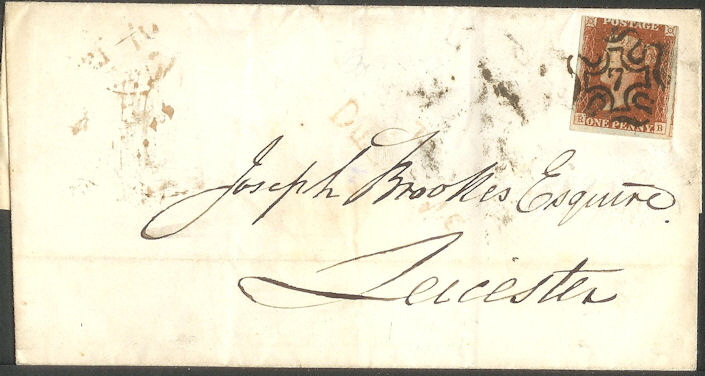 POSTAGE
7
R ONE PENNY B
Joseph Brookes Esquire
Leicester